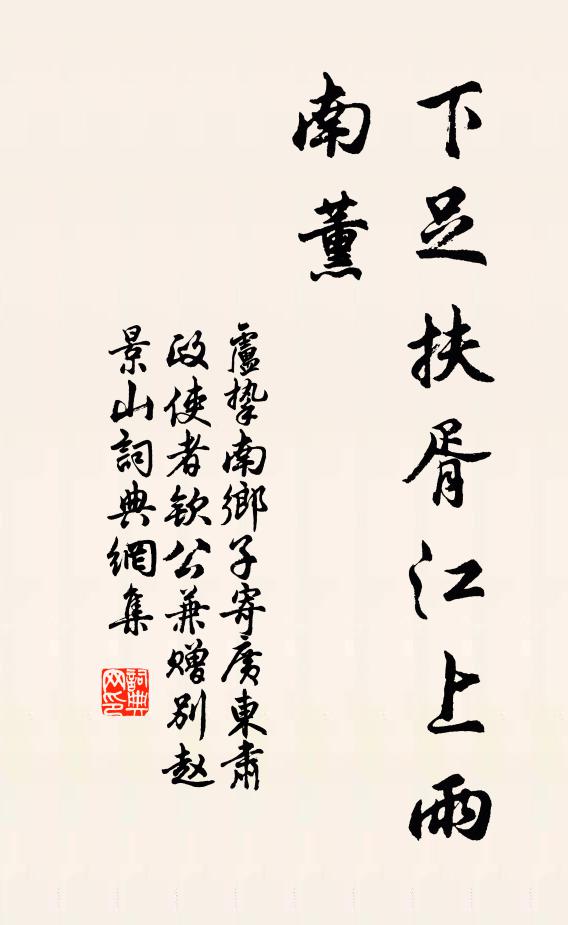 下足扶胥江上雨
南薰
盧摯南鄉子寄廣東肅
政使者欽公兼贈別赵
景山詞典網集
詞典
网印